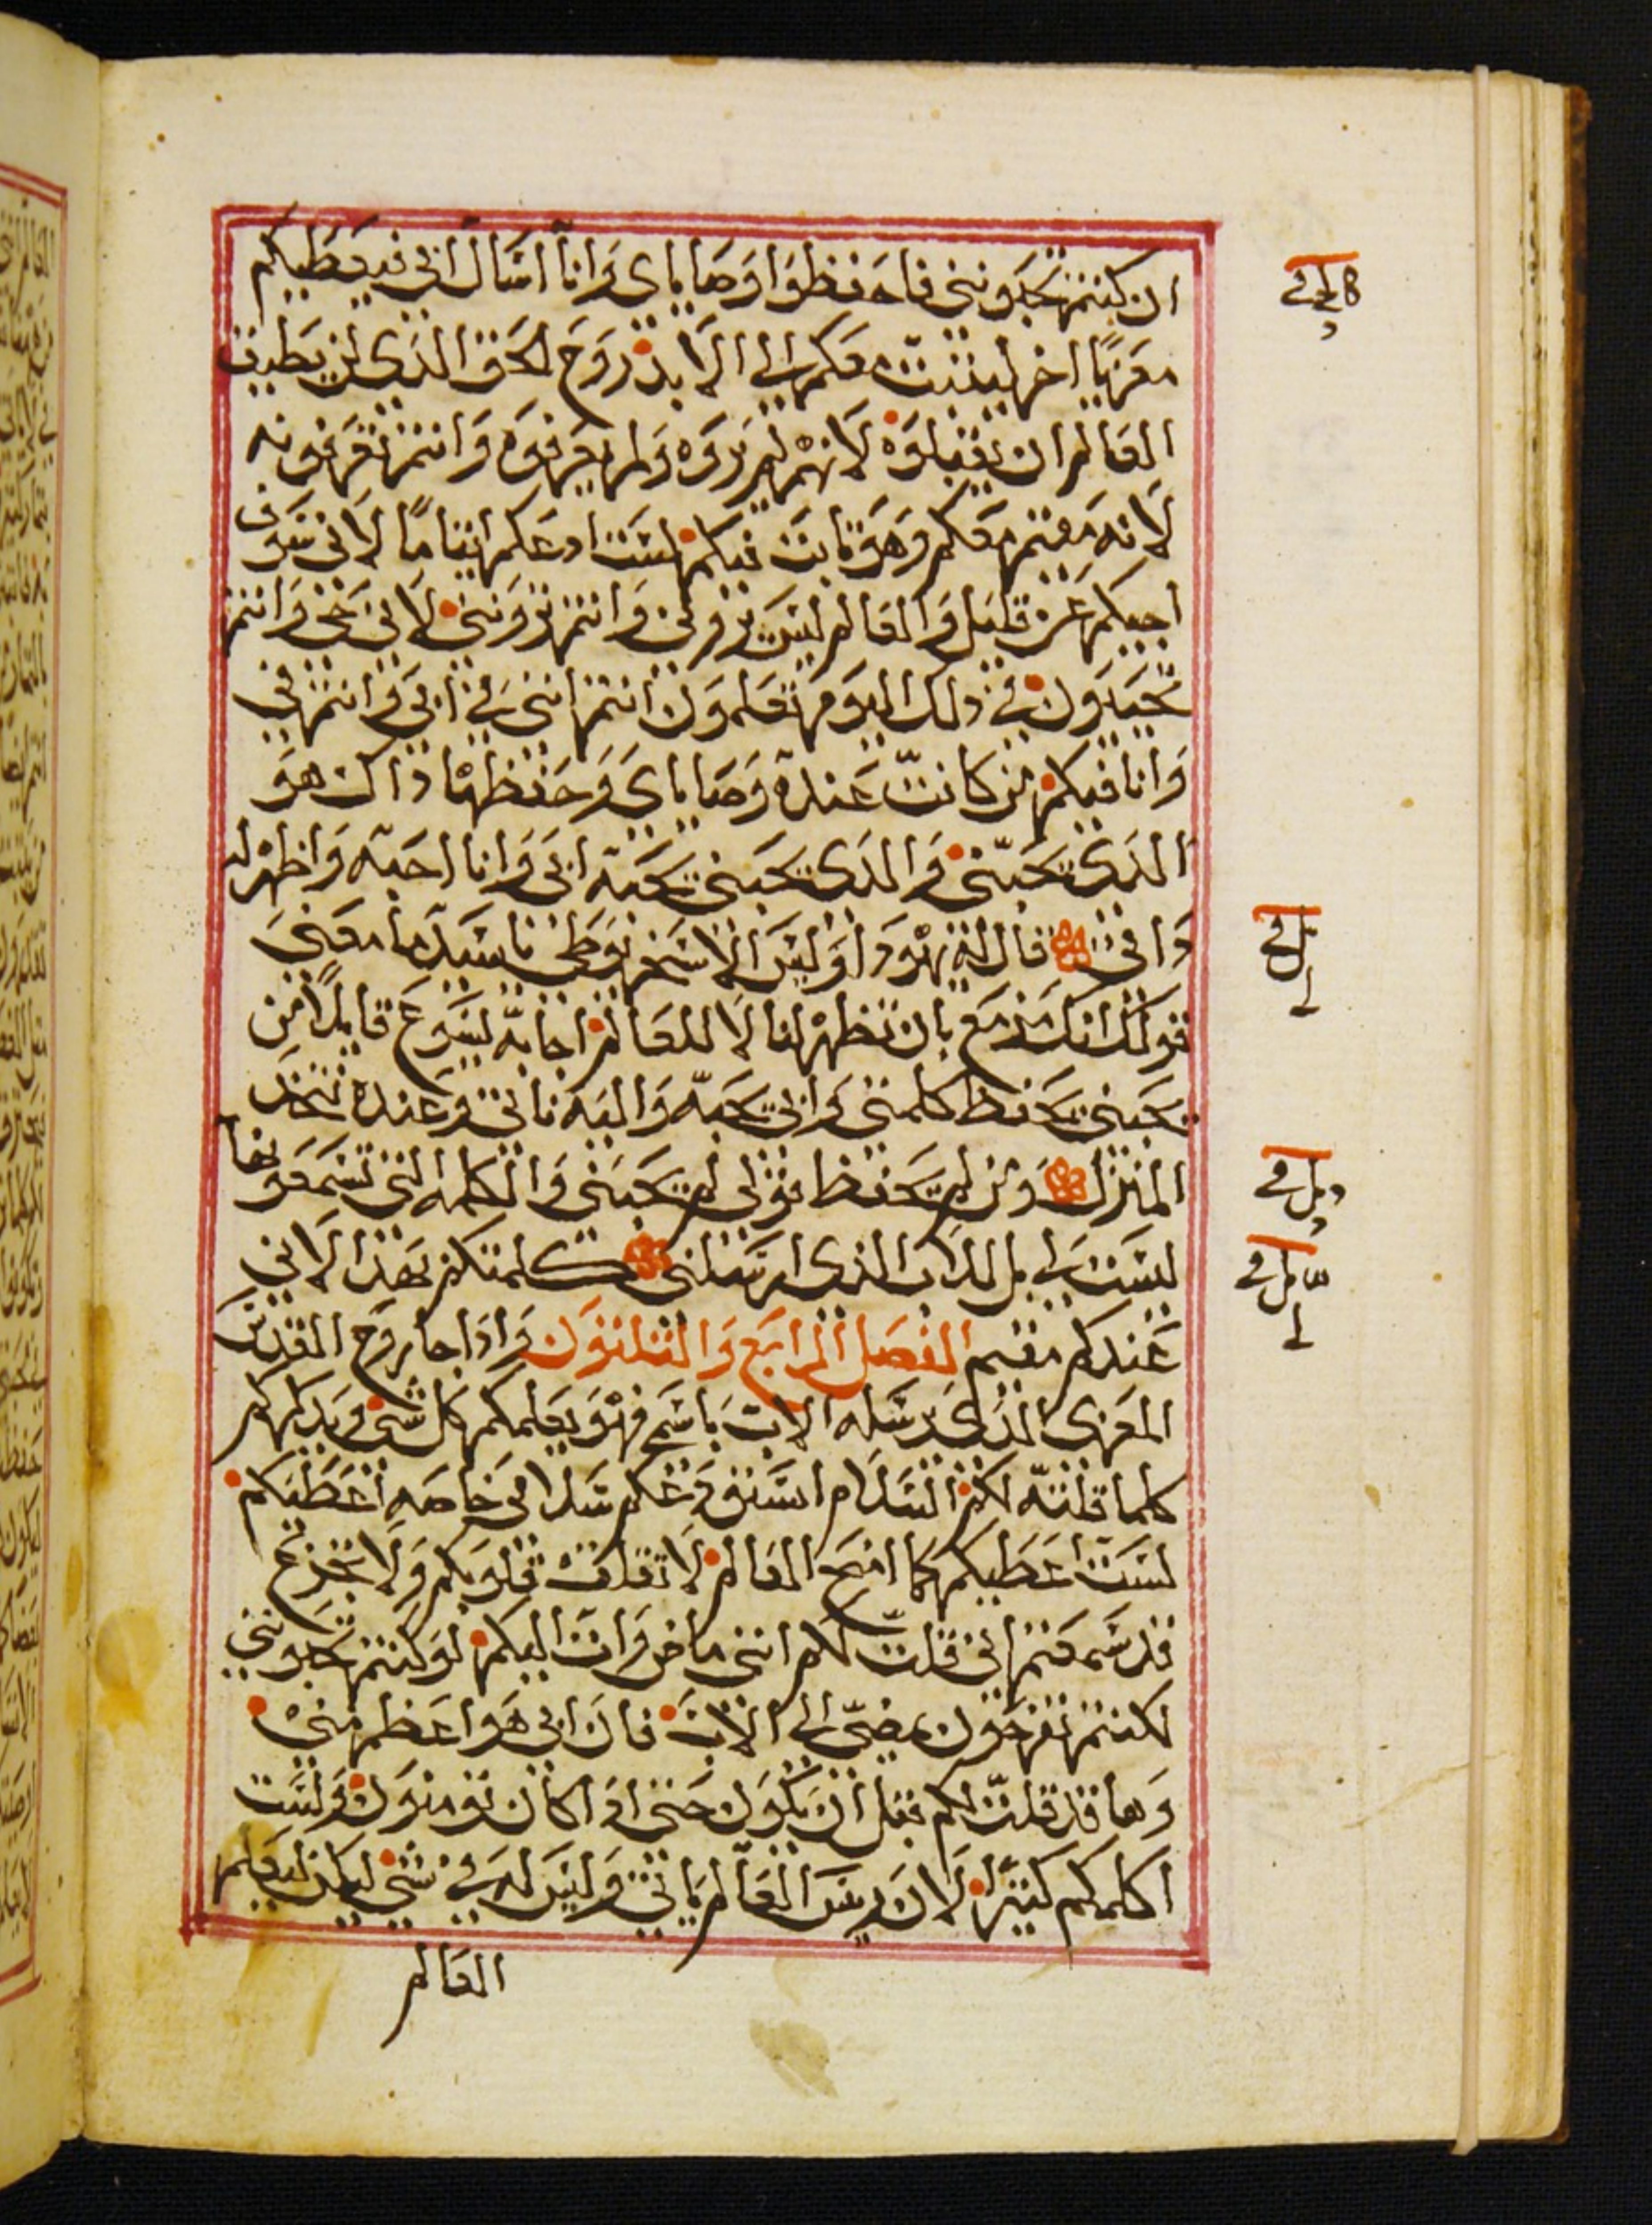 ان كنتم تحبونني فاحفظوا وصاياي وانا اسال ابي فيعطيكم
معزيا اخر ليثبت معكم الى الابد روح الحق الذي لن يطيق
العالم ان يقبلوه لانهم لم يروه ولم يعرفوه وانتم تعرفونه
لانه مقيم معكم وهو ثابت فيكم لست ادعكم ايتاما لاني سوف
اجيكم عن قليل والعالم ليس يروني وانتم تروني لاني حي وانتم
تحييون في ذلك اليوم تعلمون انتم انني في ابي وانتم في
وانا فيكم من كانت عنده وصاياي وحفظها ذاك هو
الذي يحبني والذي يحبني يحبه ابي وانا احبه واظهر له
ذاتي قال له يهودا وليس الاسخريوطي يا سيد ما معنى
قولك انك مزمع بان تظهر لنا لا للعالم اجابه يسوع قايلا من
يحبني يحفظ كلمتي وابي يحبه واليه ناتي وعنده نتخذ
المنزل ومن لم يحفظ قولي لم يحبني والكلمه التي تسمعونها
ليست لي بل للاب الذي ارسلني كلمتكم بهذا لاني
عندكم مقيم الفصل الرابع والثلثون واذا جا روح القدس
المعزي الذي يرسله الاب باسمي فهو يعلمكم كل شي ويذكركم
كلما قلته لكم السلام استودعكم سلامي خاصه اعطيكم
لست اعطيكم كما امنح العالم لا تقلق قلوبكم ولا تجزع
قد سمعتم اني قلت لكم انني ماض وات اليكم لو كنتم تحبونني
لكنتم تفرحون بمضيي الى الاب فان ابي هو اعظم مني
وها قد قلت لكم قبل ان يكون حتى اذا كان تومنون ولست
اكلمكم كثيرا لان ريس العالم ياتي وليس له في شي ليكن ليعلم
العالم